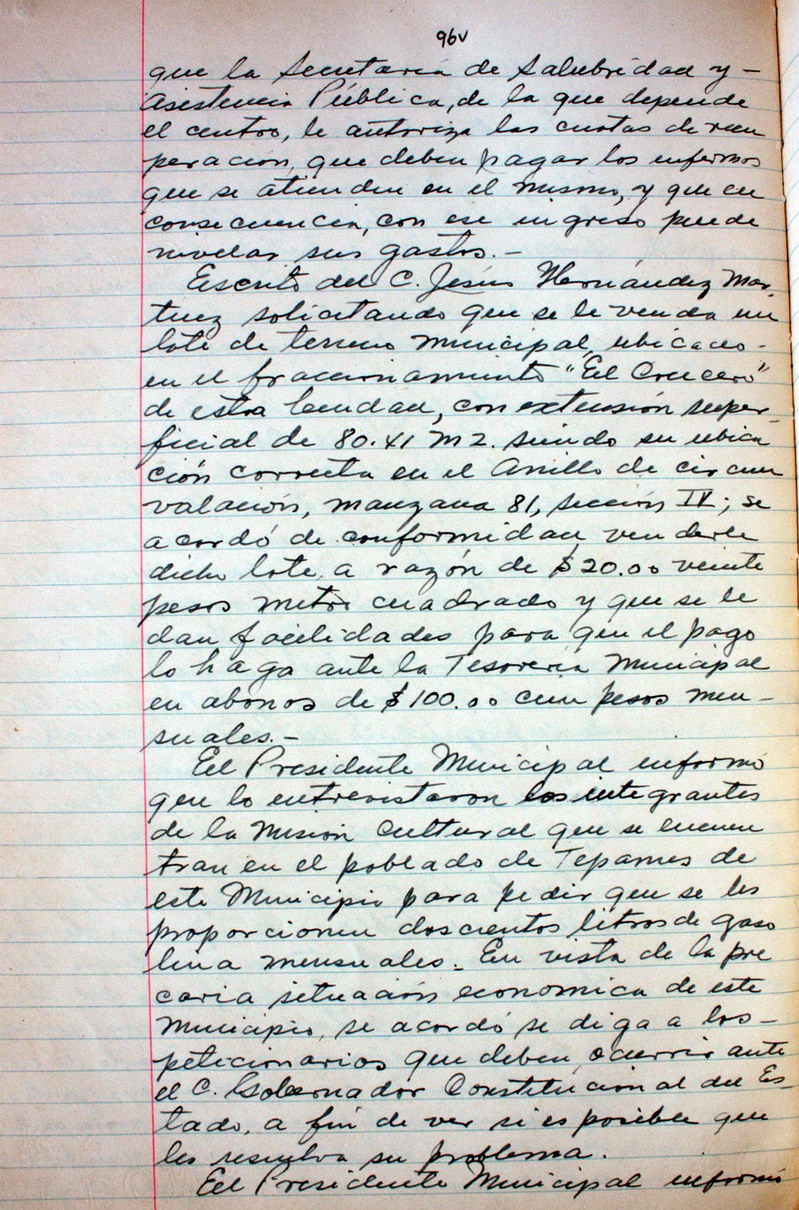 96v
que la Secretaría de Salubridad y -
Asistencia Pública, de la que depende
el centro, le autoriza las cuotas de recu
peración, que deben pagar los enfermos
que se atienden en el mismo, y que en
consecuencia, con ese ingreso puede
nivelar sus gastos. -
Escrito del C. Jesús Hernández Mar
tínez solicitando que se le venda un
lote de terreno municipal, ubicado -
en el fraccionamiento "El Crucero"
de esta localidad, con extensión super-
ficial de 80.41 m2. siendo su ubica
ción correcta en el Anillo de circun
valación, manzana 81, sección IV; se
acordó de conformidad venderle
dicho lote a razón de $20.00 veinte
pesos metro cuadrado y que se le
dan facilidades para que el pago
lo haga ante la Tesorería Municipal
en abonos de $100.00 cien pesos men-
suales. -
El Presidente Municipal informó
que lo entrevistaron los integrantes
de la Misión Cultural que se encuen
tran en el poblado de Tepames de
este Municipio para pedir que se les
proporcionen doscientos litros de gaso
lina mensuales. En vista de la pre
caria situación economica de este
Municipio, se acordó se diga a los -
peticionarios que deben ocurrir ante
el C. Gobernador Constitucional del Es-
tado, a fin de ver si es posible que
les resuelva su problema.
El Presidente Municipal informó